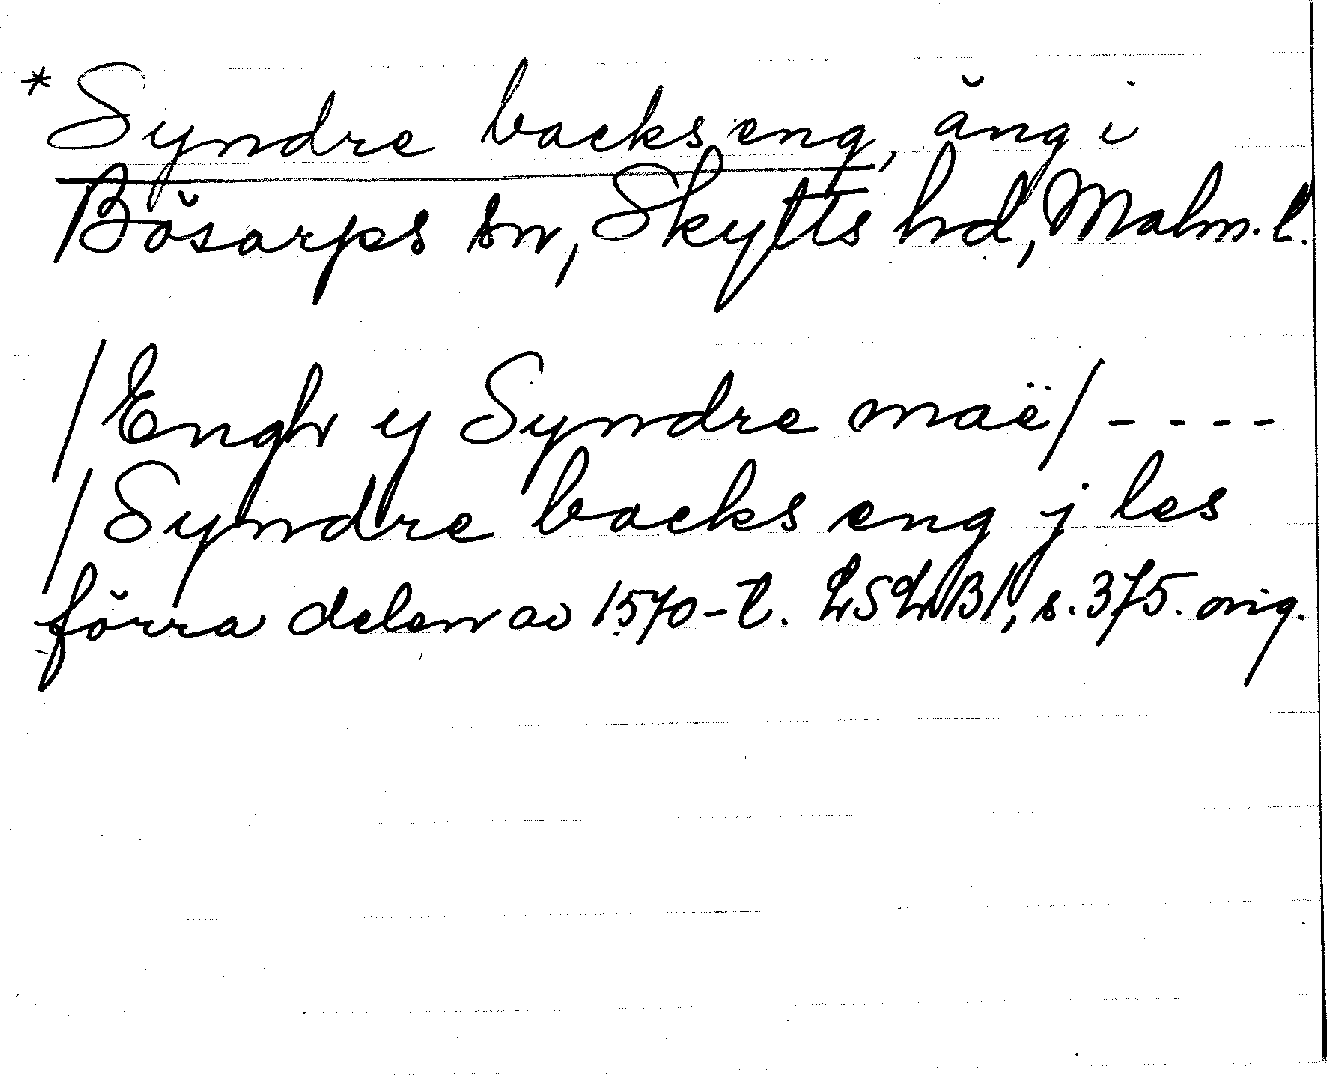 * Syndre backs eng, äng i
Bösarps sn, Skytts hd, Malm. l.
/Engh y Syndre maë/ - - - -
/Syndre backs eng j les
förra delen av 1570-t. LSLB1, s. 375. orig.